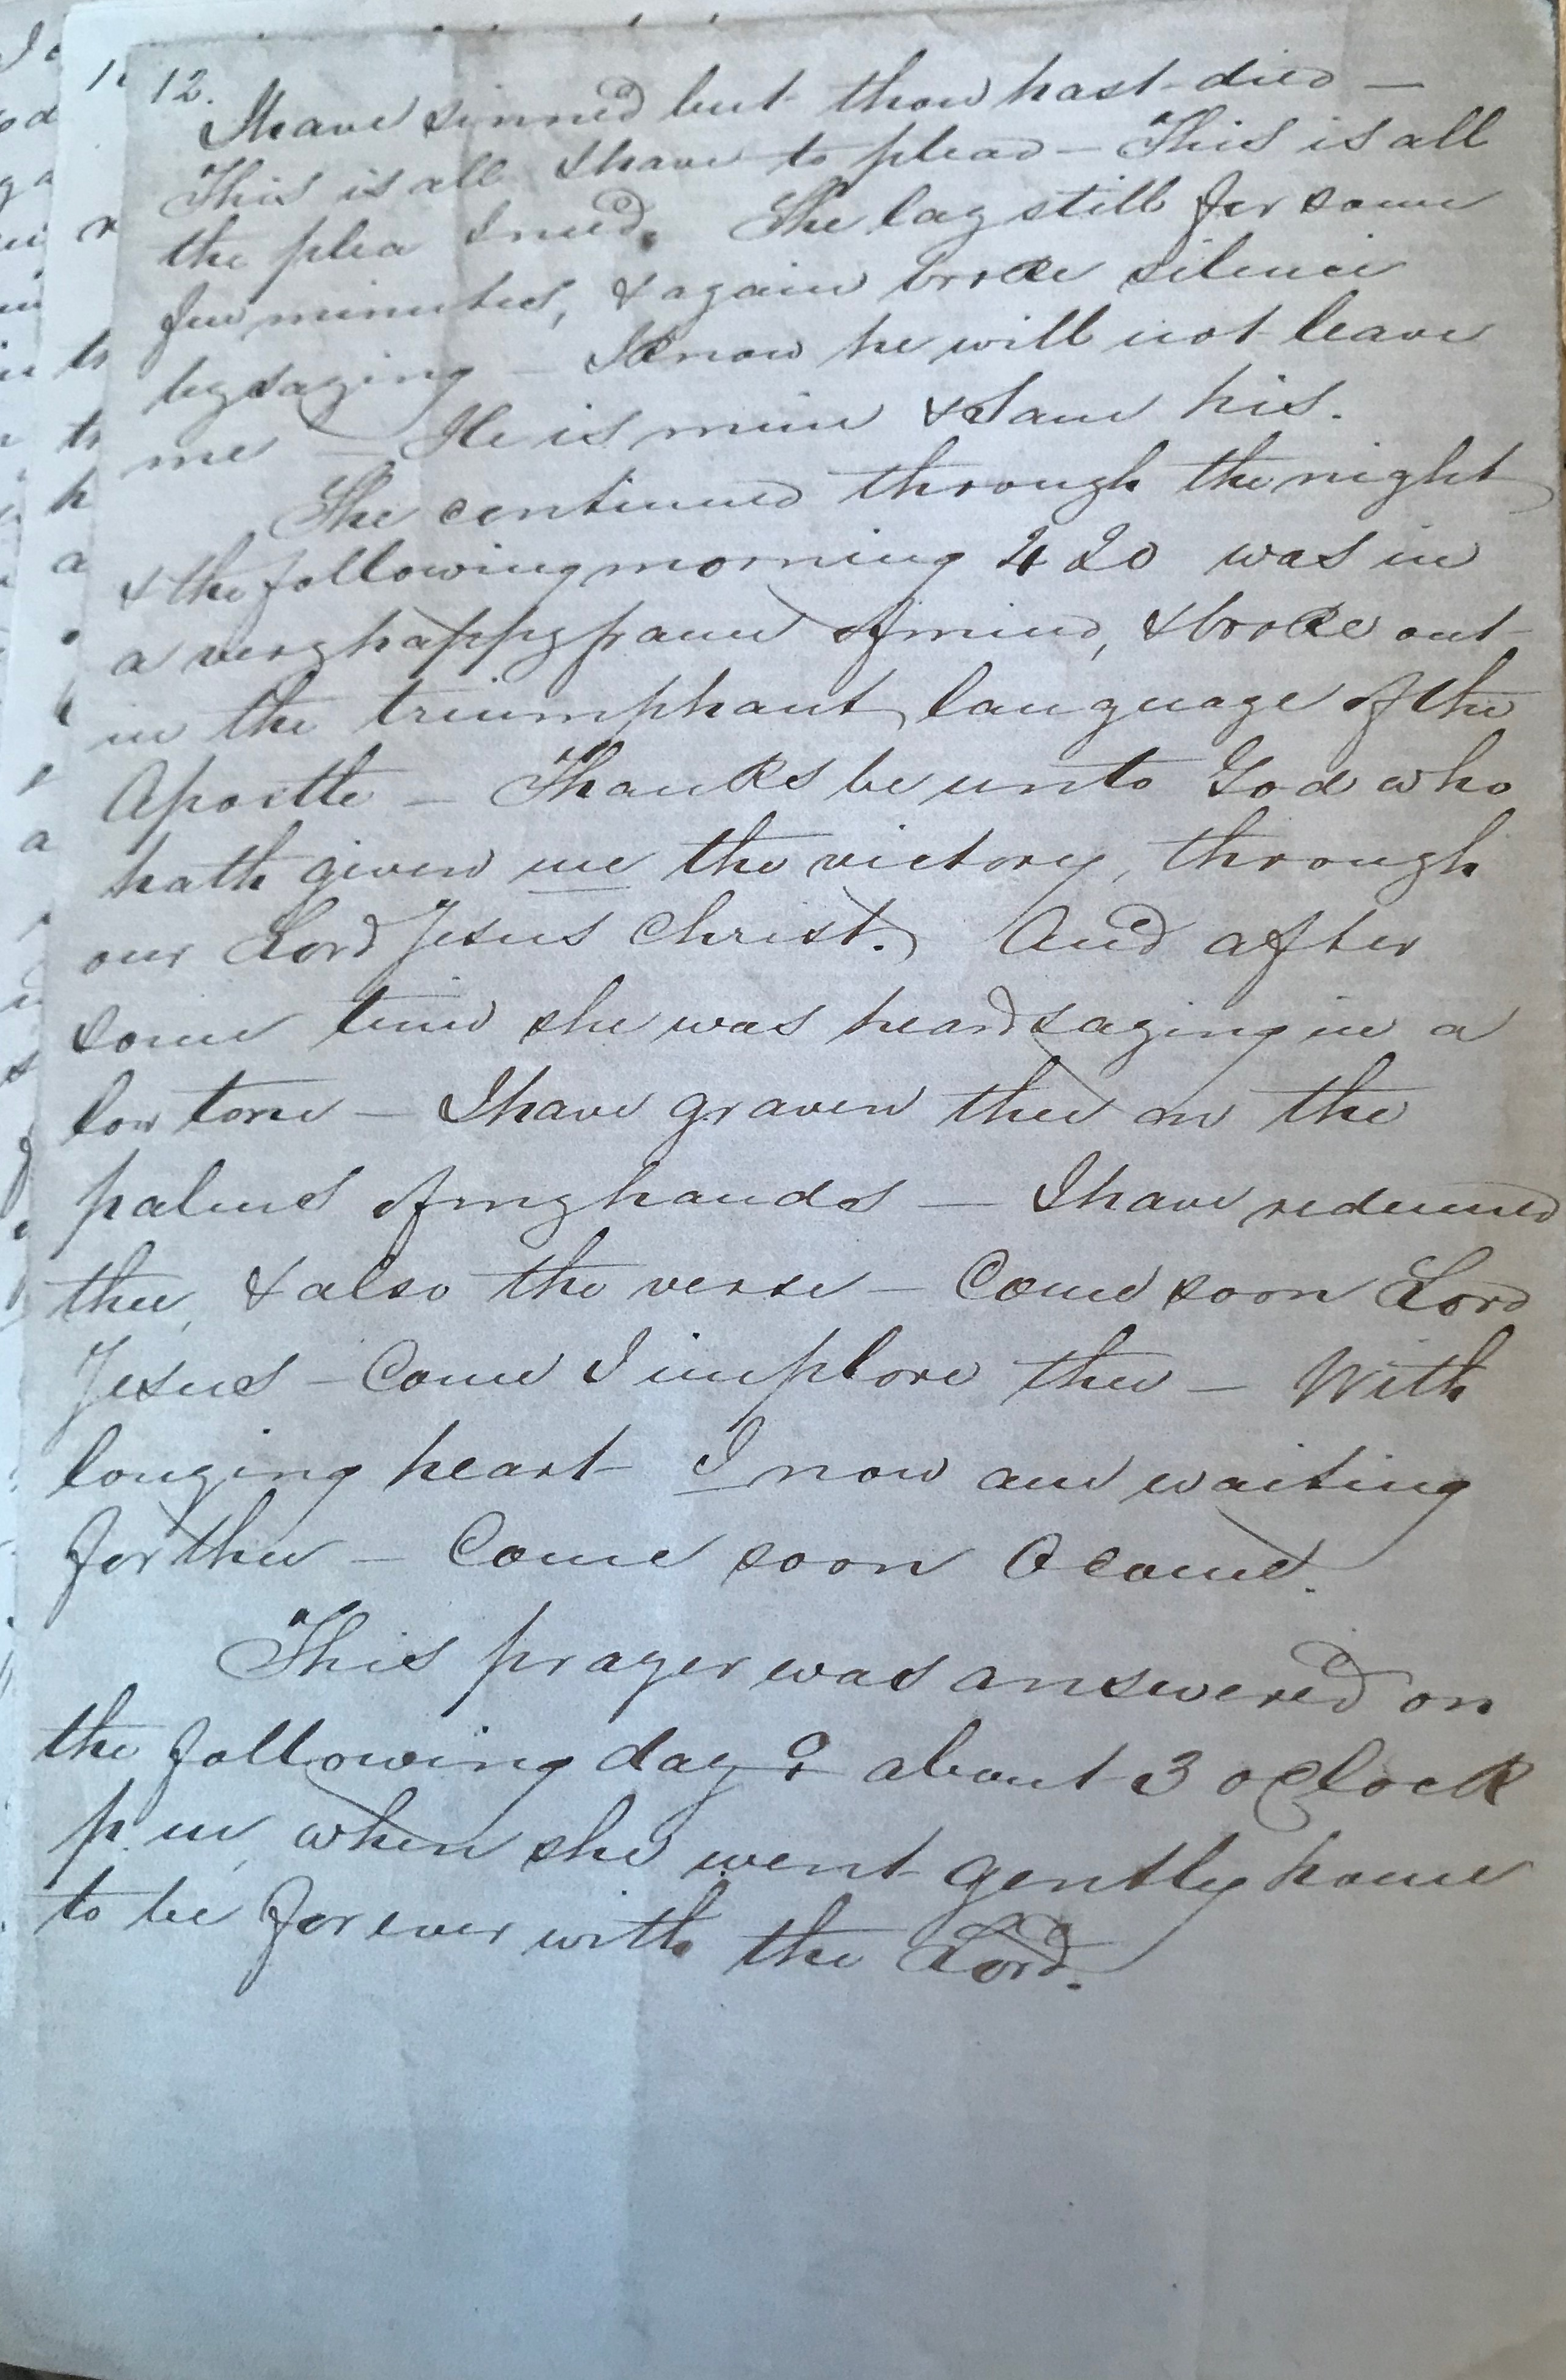 12.
I have sinned but thou hast died —
This is all I have to plead — This is all
the plea I need. She lay still for some
few minutes, & again broke silence
by saying — I know he will not leave
me — He is mine & I am his.
She continued through the night
& the following morning 4 20 was in
a very happy frame of mind, & broke out
in the triumphant language of the
Apostle — Thanks be unto God who
hath given me the victory, through
our Lord Jesus Christ. And after
some time she was heard saying in a
low tone — I have graven thee on the
palms of my hands — I have redeemed
thee, & also the verse — Come soon Lord
Jesus — Come I implore thee — With
longing heart I now am waiting
for thee — Come soon O come.
This prayer was answered on
the following day about 3 o Clock
p. m, when she went gently home
to be for ever with the Lord.